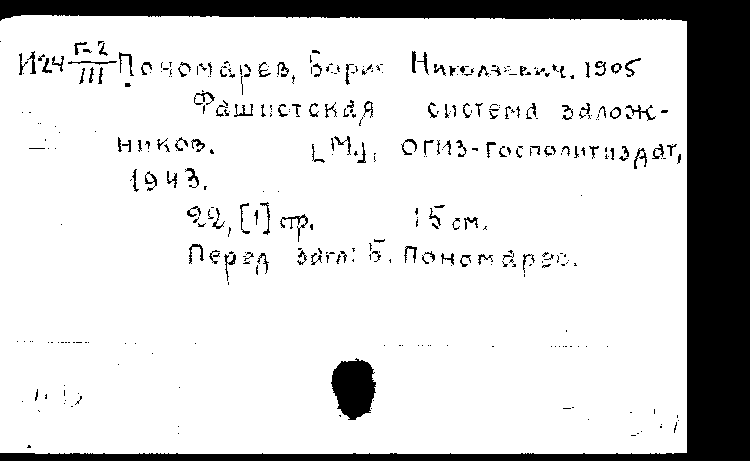 И24 Г-2/III Пономарев, Борис Николаевич. 1905
Фашистская система залож-
ников. [М.], ОГИЗ-Госполитиздат,
1943.
22, [1] стр. 15 см.
Перед загл: Б. Пономарев.